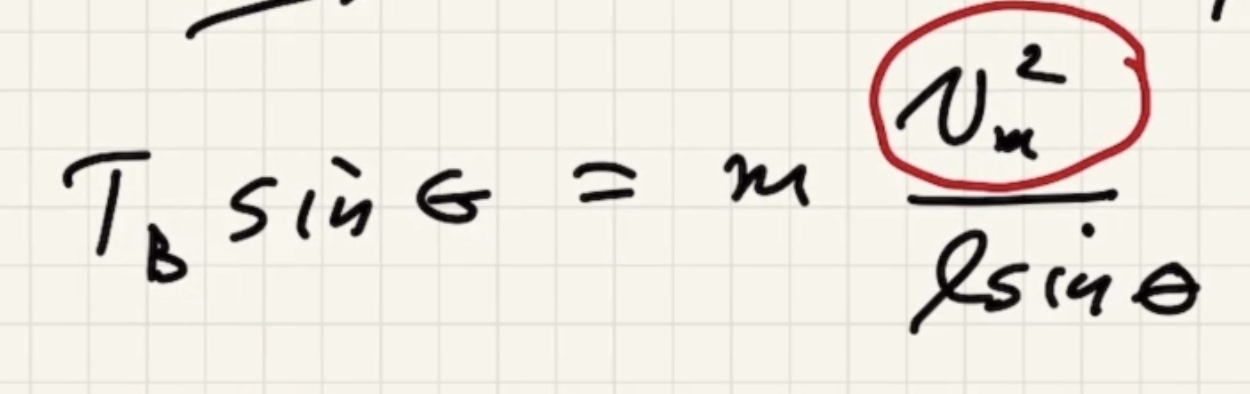 T_B sin θ = m v_m^2 / (l sin θ)